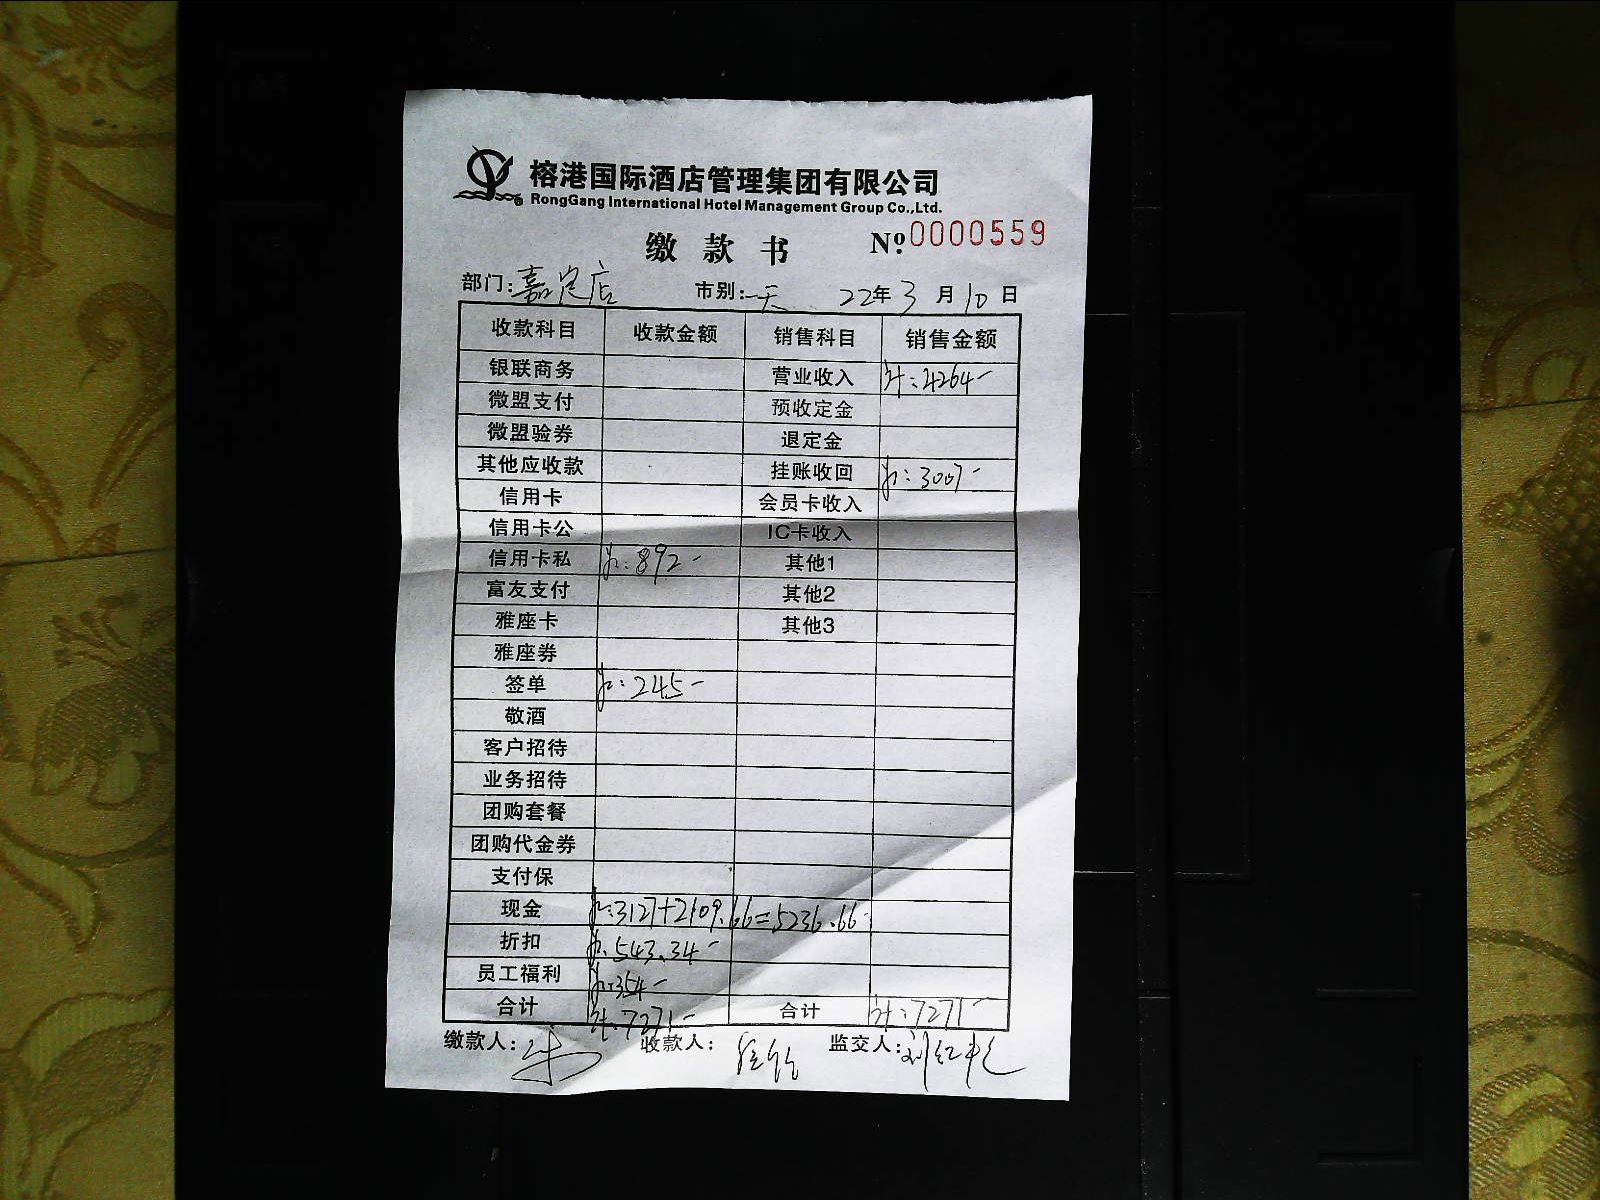 榕港国际酒店管理集团有限公司
RongGang International Hotel Management Group Co.,Ltd.
缴款书 №:0000559
部门:嘉定店 市别:一天 22年3月10日
收款科目 收款金额 销售科目 销售金额
银联商务 营业收入 计:4264-
微盟支付 预收定金
微盟验券 退定金
其他应收款 挂账收回 计:3007-
信用卡 会员卡收入
信用卡公 IC卡收入
信用卡私 计:892- 其他1
富友支付 其他2
雅座卡 其他3
雅座券
签单 计:245-
敬酒
客户招待
业务招待
团购套餐
团购代金券
支付保
现金 计:3127+2109.66=5236.66
折扣 计:543.34-
员工福利 计:354-
合计 计:7271- 合计 计:7271-
缴款人: 收款人: 监交人:刘红艳